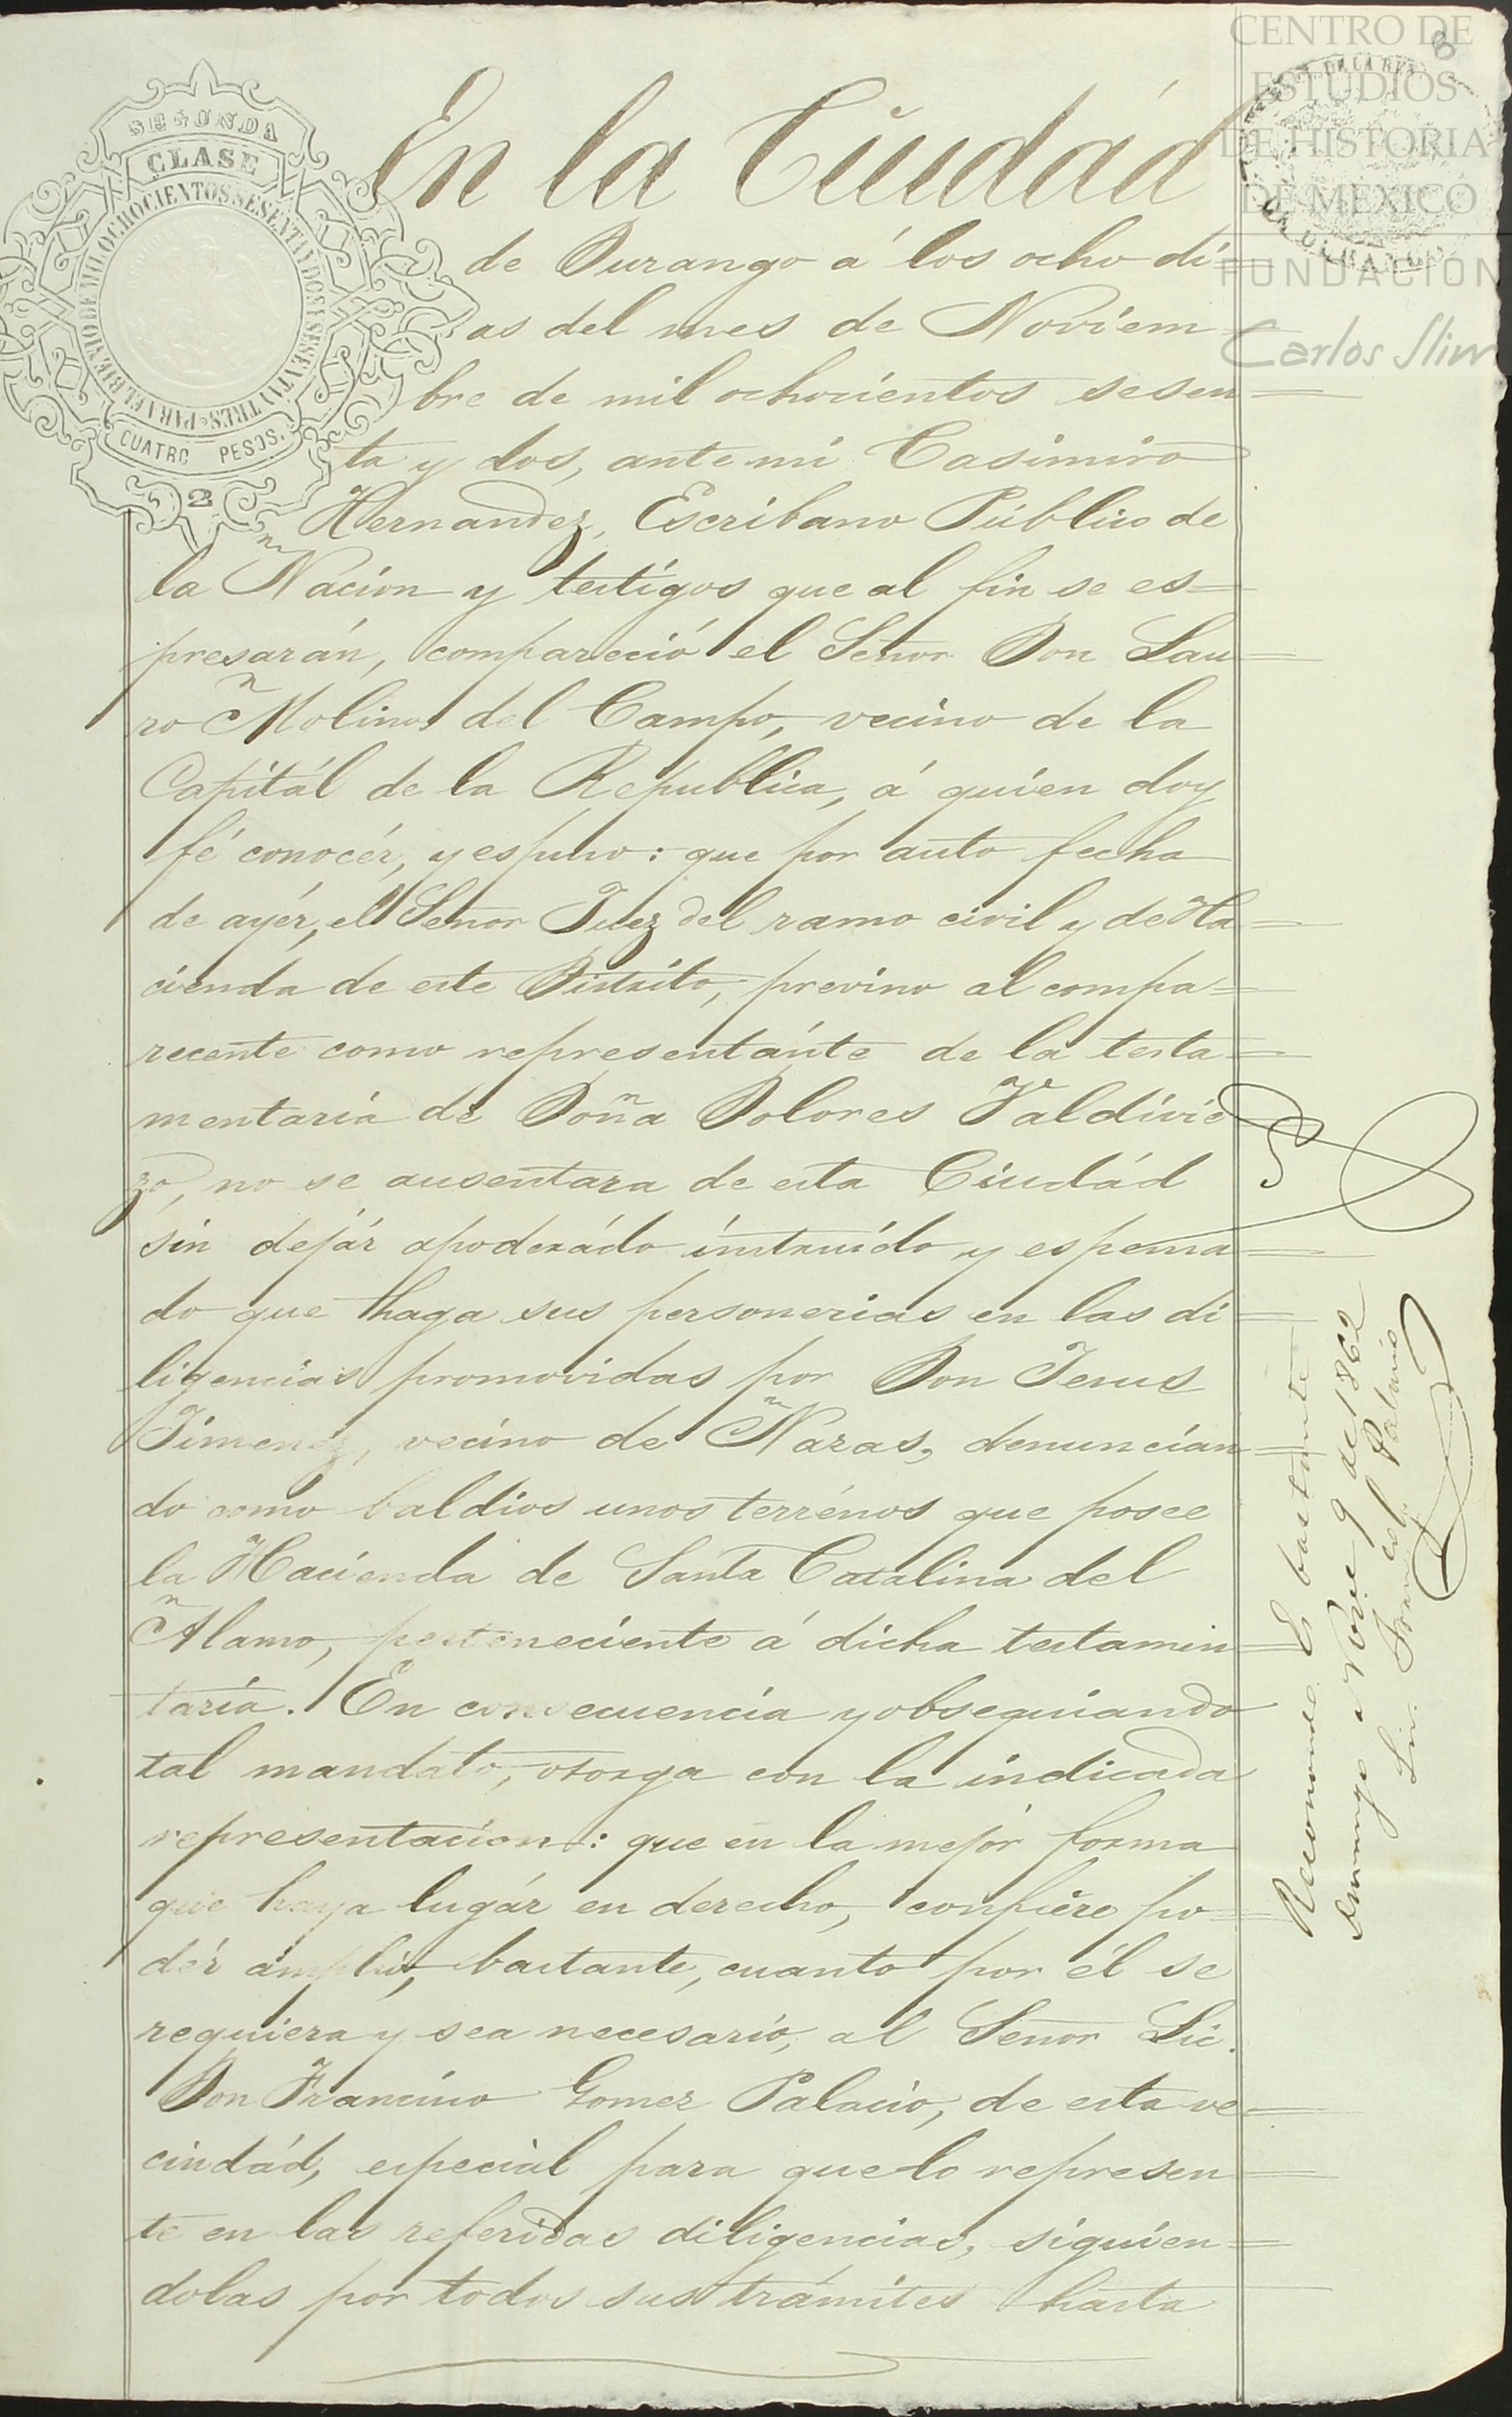 CENTRO DE
ESTUDIOS
DE HISTORIA
DE MÉXICO
FUNDACIÓN
Carlos Slim
8
SEGUNDA
CLASE
PARA EL BIENIO DE MIL OCHOCIENTOS SESENTA Y DOS Y SESENTA Y TRES
CUATRO PESOS.
2
En la Ciudád
de Durango á los ocho di=
as del mes de Noviem=
bre de mil ochocientos sesen=
ta y dos, ante mi Casimiro
Hernandez, Escribano Público de
la Nacion y testigos que al fin se es=
presarán, compareció el Señor Don Lau=
ro Molinos del Campo, vecino de la
Capitál de la Republica, á quien doy
fé conocér, y espuso: que por auto fecha
de ayér, el Señor Juez del ramo civil y de Ha=
cienda de este Distrito, previno al compa=
recente como representánte de la testa=
mentaria de Doña Dolores Valdivie
zo, no se ausentara de esta Ciudád
sin dejár apoderádo instruído y espensa=
do que haga sus personerias en las di=
ligencias promovidas por Don Jesus
Jimenez, vecino de Nazas, denuncian=
do como baldios unos terrénos que posee
la Hacienda de Santa Catalina del
Alamo, perteneciente á dicha testamen=
taría. En consecuencia y obsequiando
tal mandato, otorga con la indicada
representacion: que en la mejór forma
que haya lugár en derecho, confiére po=
dér ámplio, bastante, cuanto por él se
requiera y sea necesario, al Señor Lic.
Don Francisco Gomez Palacio, de esta ve=
cindád, especial para que lo represen=
te en las referidas diligencias, siguien=
dolas por todos sus trámites hasta
Reconocido. Es bastante
Durango a Nove 9 de 1862
Lic. Franco G. Palacio